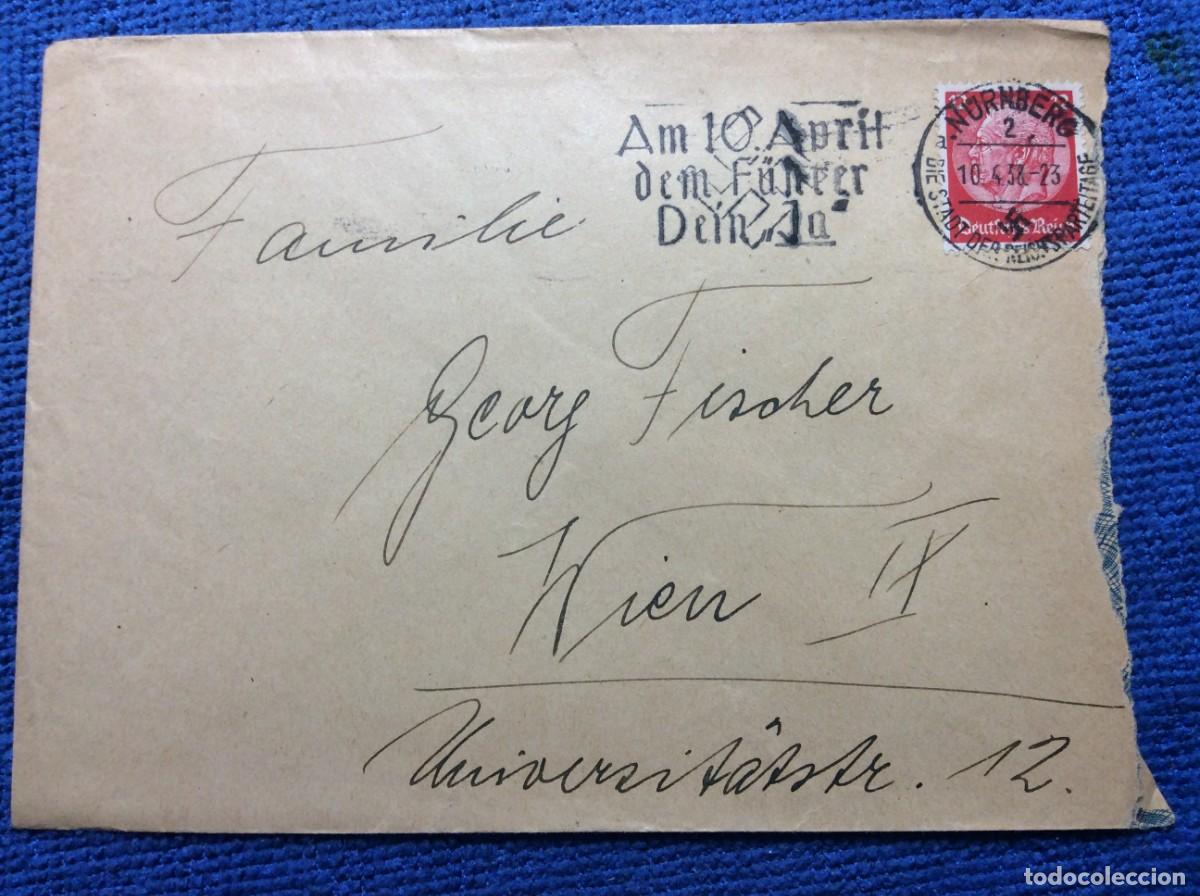 Am 10. April
dem Führer
Dein „Ja“
NÜRNBERG
2
10.4.38.-23
DIE STADT DER REICHSPARTEITAGE
12
Deutsches Reich
Familie
Georg Fischer
Wien IX
Universitätstr. 12.
todocoleccion